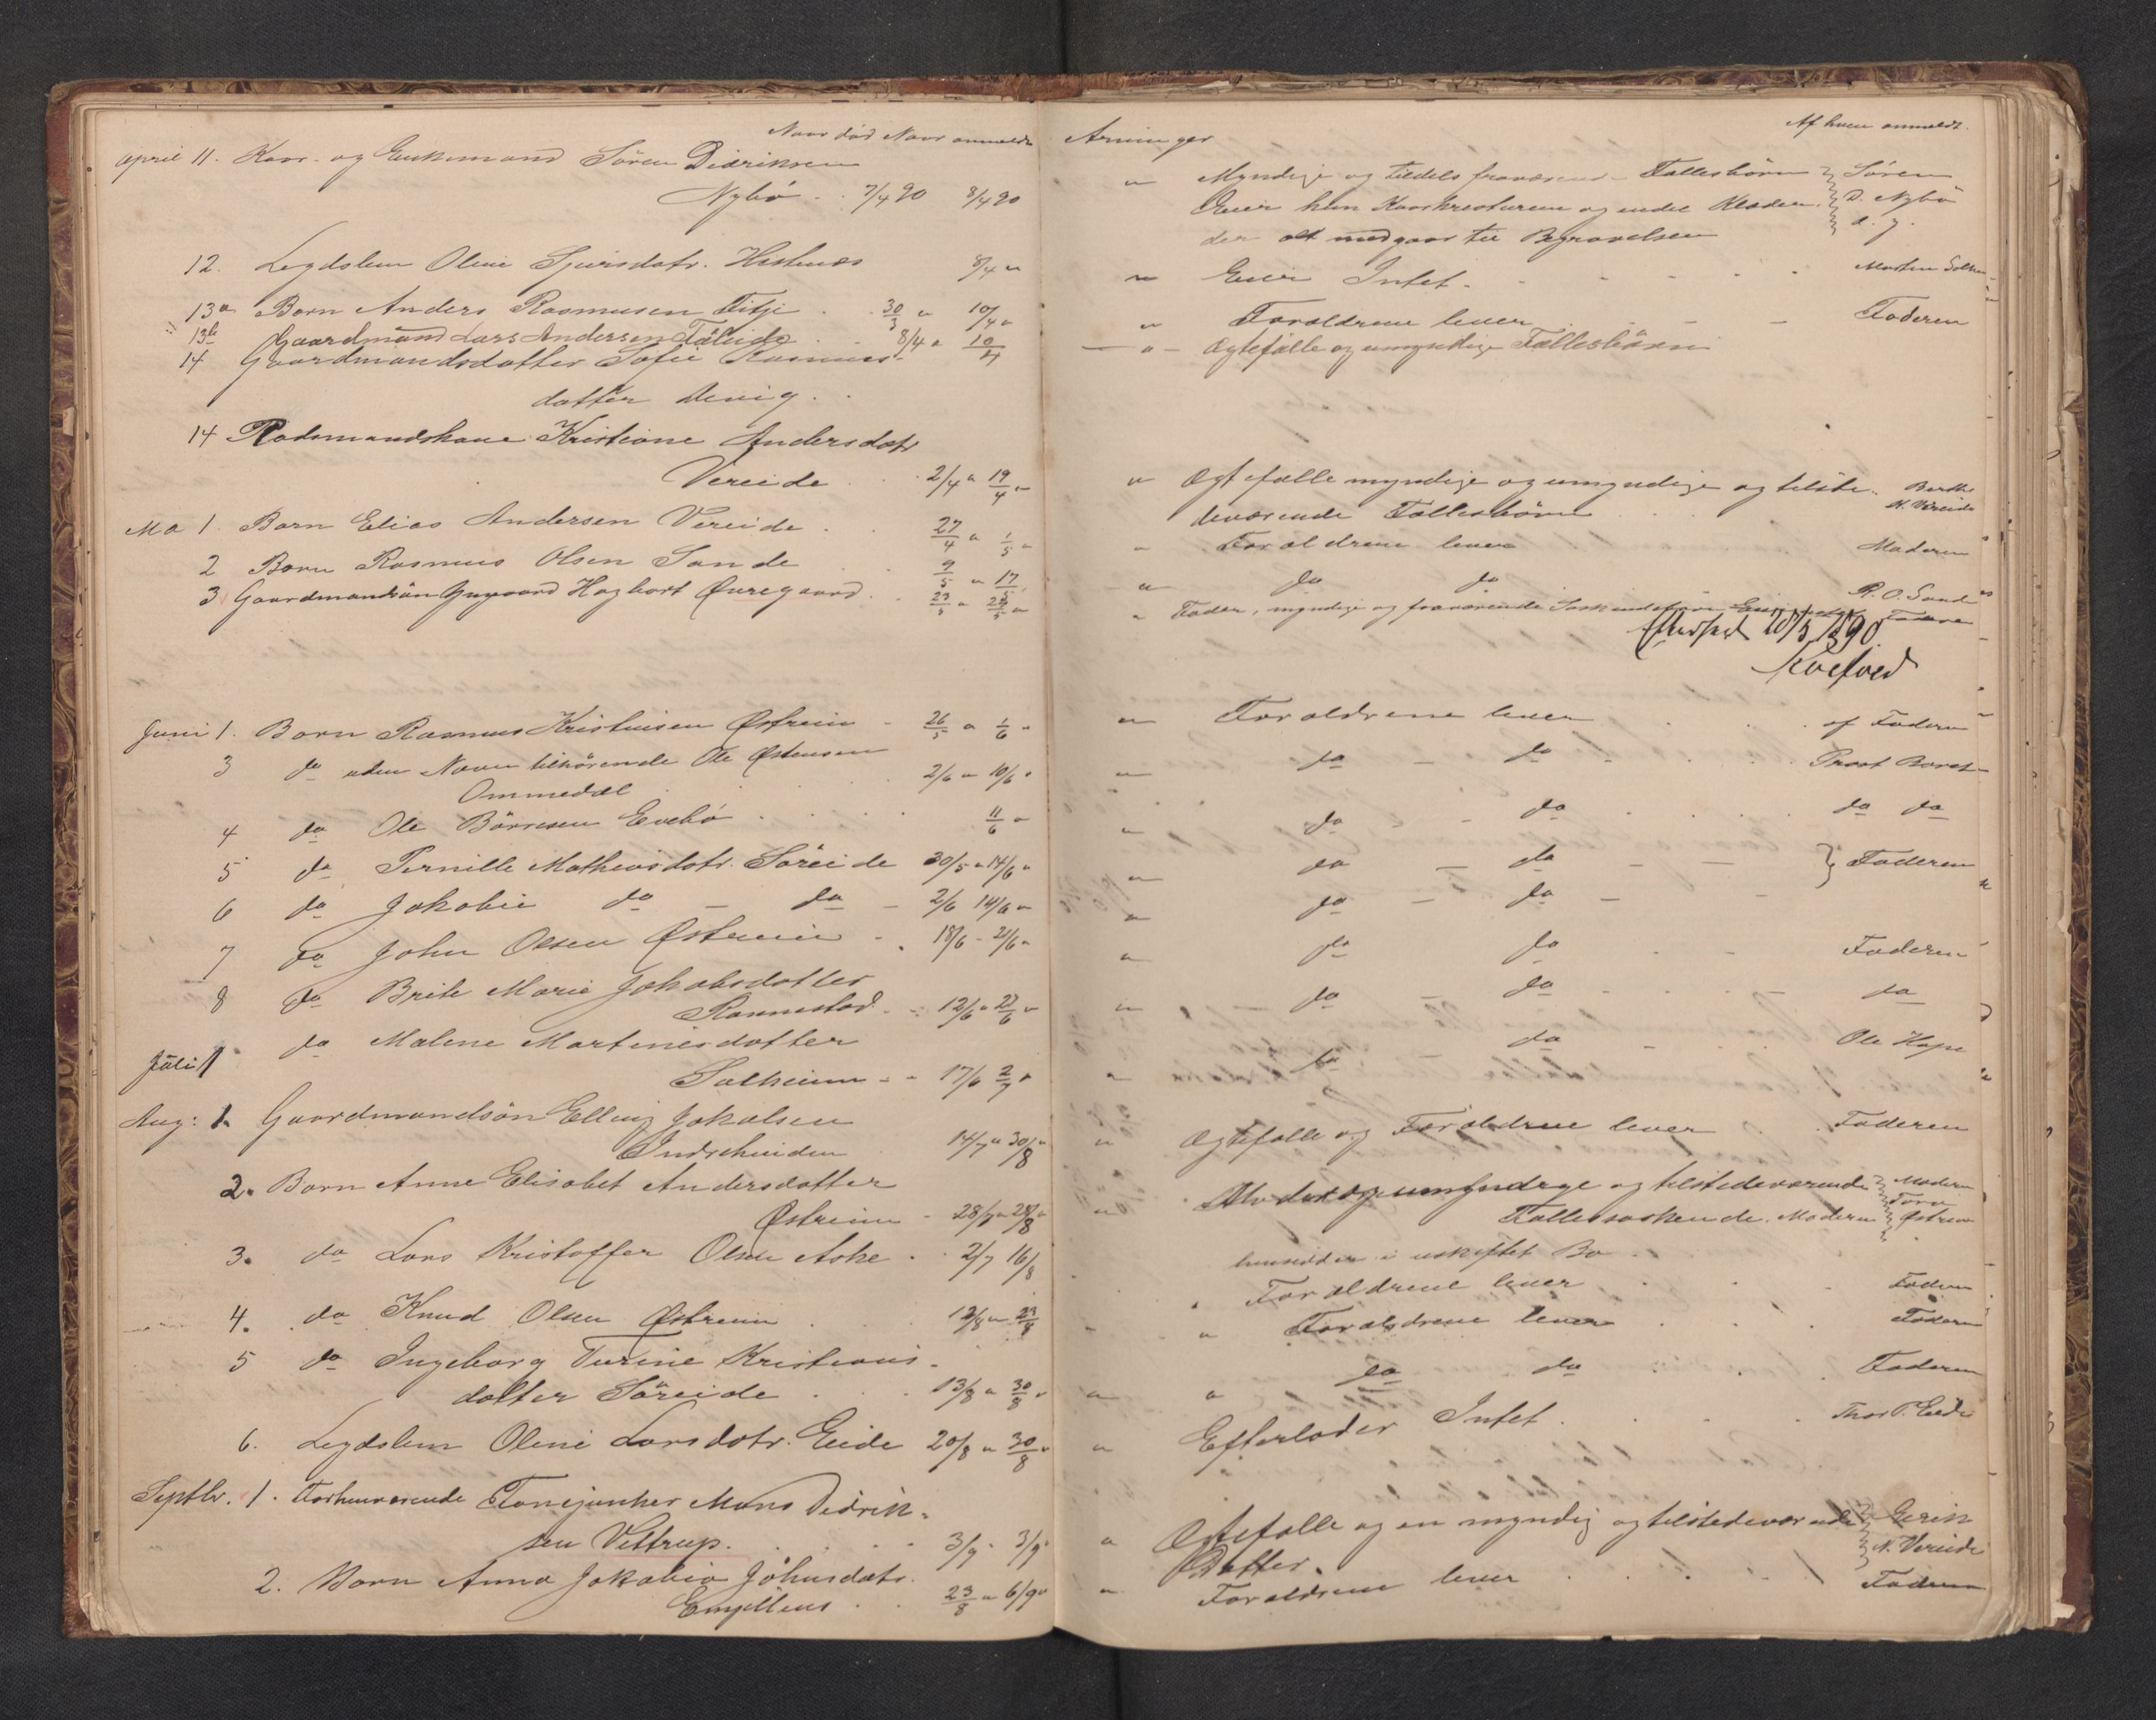 Naar död Naar anmeldt
april 11. Kaar- og Enkemand Sören Didriksen
Nybö 7/4 90 8/4 90
12. Legdslem Oline Sjursdatr. Hestenæs 8/4 "
13a Barn Anders Rasmusen Titje 30/3 " 10/4 "
13b Gaardmand Lars Andersen 8/4 " 10/4
14 Gaardmandsdatter Sofie Rasmus-
datter
14 Kristiane Andersdatr
Vereide 2/4 " 19/4 "
Ma 1. Barn Elias Andersen Vereide 27/4 " 1/5 "
2 Barn Rasmus Olsen Sande 9/5 " 17/5
3 Gaardmandsön Hagbart Øvregaard 23/5 "
Juni 1. Barn Rasmus Kristensen Østreim 26/5 " 1/6 "
3 do uden Navn tilhörende Ole Østensen
Ommedal 2/6 " 10/6 "
4 do Ole Börresen Evebö 11/6 "
5 do Pernille Matheusdatr. Söreide 30/5 " 14/6 "
6 do Jakobie do - do - 2/6 14/6 "
7 do John Olsen Østreim 18/6 - 21/6 "
8 do Brite Marie Jakobsdatter
12/6 " 22/6 "
Juli 1 do Malene Martinesdatter
Solheim - - 17/6 2/7 "
Aug: 1. Gaardmandsön Elling Jakobsen
Indrehuiden 14/7 " 30/8 "
2. Barn Anne Elisabet Andersdatter
Østreim - 28/7
3. do Lars Kristoffer Olsen Aske 2/7 16/8
4. do Knud Olsen Østreim 12/8 " 23/8
5 do Ingeborg Kristians-
datter Söreide 13/8 " 30/8 "
6. Legdslem Oline Larsdatr. Eide 20/8 " 30/8 "
Septbr. 1. Forhenværende Mons Didrik-
sen Vettrup. 3/9 - 3/9 "
2. Barn Anna Jakobia Johnsdatr.
23/8 " 6/9 "
Arvinger Af hvem anmeldt.
" Myndige og tildels fraværende Fællesbörn } Sören
Eier kun Kaarkreaturene og endel Klæder } D. Nybö
der alt medgaar til Begravelsen } d. y.
" Eier Intet.
" Forældrene lever Faderen
" Ægtefælle og umyndige Fællesbörn
" Ægtefælle myndige og umyndige og tilste-
deværende Fællesbörn
" Forældrene lever Moderen
" do do R. O. Sande
" Fader, myndige og fraværende Faderen
Efterseet 1890
Koefoed
" Forældrene lever af Faderen
" do - do
" do - do do do
" do - do - } Faderen
" do - do -
" do do Faderen
" do - do do
" do do Ole Hope
" Ægtefælle og Forældrene lever Faderen
umyndige og tilstedeværende } Moderen
Fællessöskende. Moderen } Østreim
hensidder i uskiftet Bo
" Forældrene lever Faderen
" Forældrene lever Faderen
" do do Faderen
" Efterlader Intet.
" Ægtefælle og en myndig og tilstedeværende } Gerik
Datter. } N. Vereide
" Forældrene lever Faderen